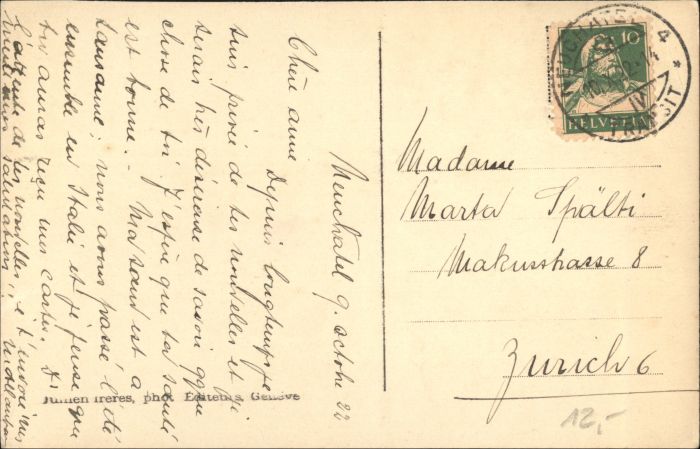 Neuchatel 9. octobre 22
Chère amie
Depuis longtemps je
suis privée de tes nouvelles et je
serais très désireuse de savoir qque
chose de toi. J'espère que ta santé
est bonne. - Ma sœur est a
Lausanne; nous avons passé l'été
ensemble en Italie et je pense que
tu auras reçu mes cartes. -
L'attente de tes nouvelles, je t'envoie mes
salutations
Jullien frères, phot. Editeurs, Genève
10
HELVETIA
NEUCHATEL 4
TRANSIT
Madame
Marta Spälti
Makusstrasse 8
Zurich 6
12,-